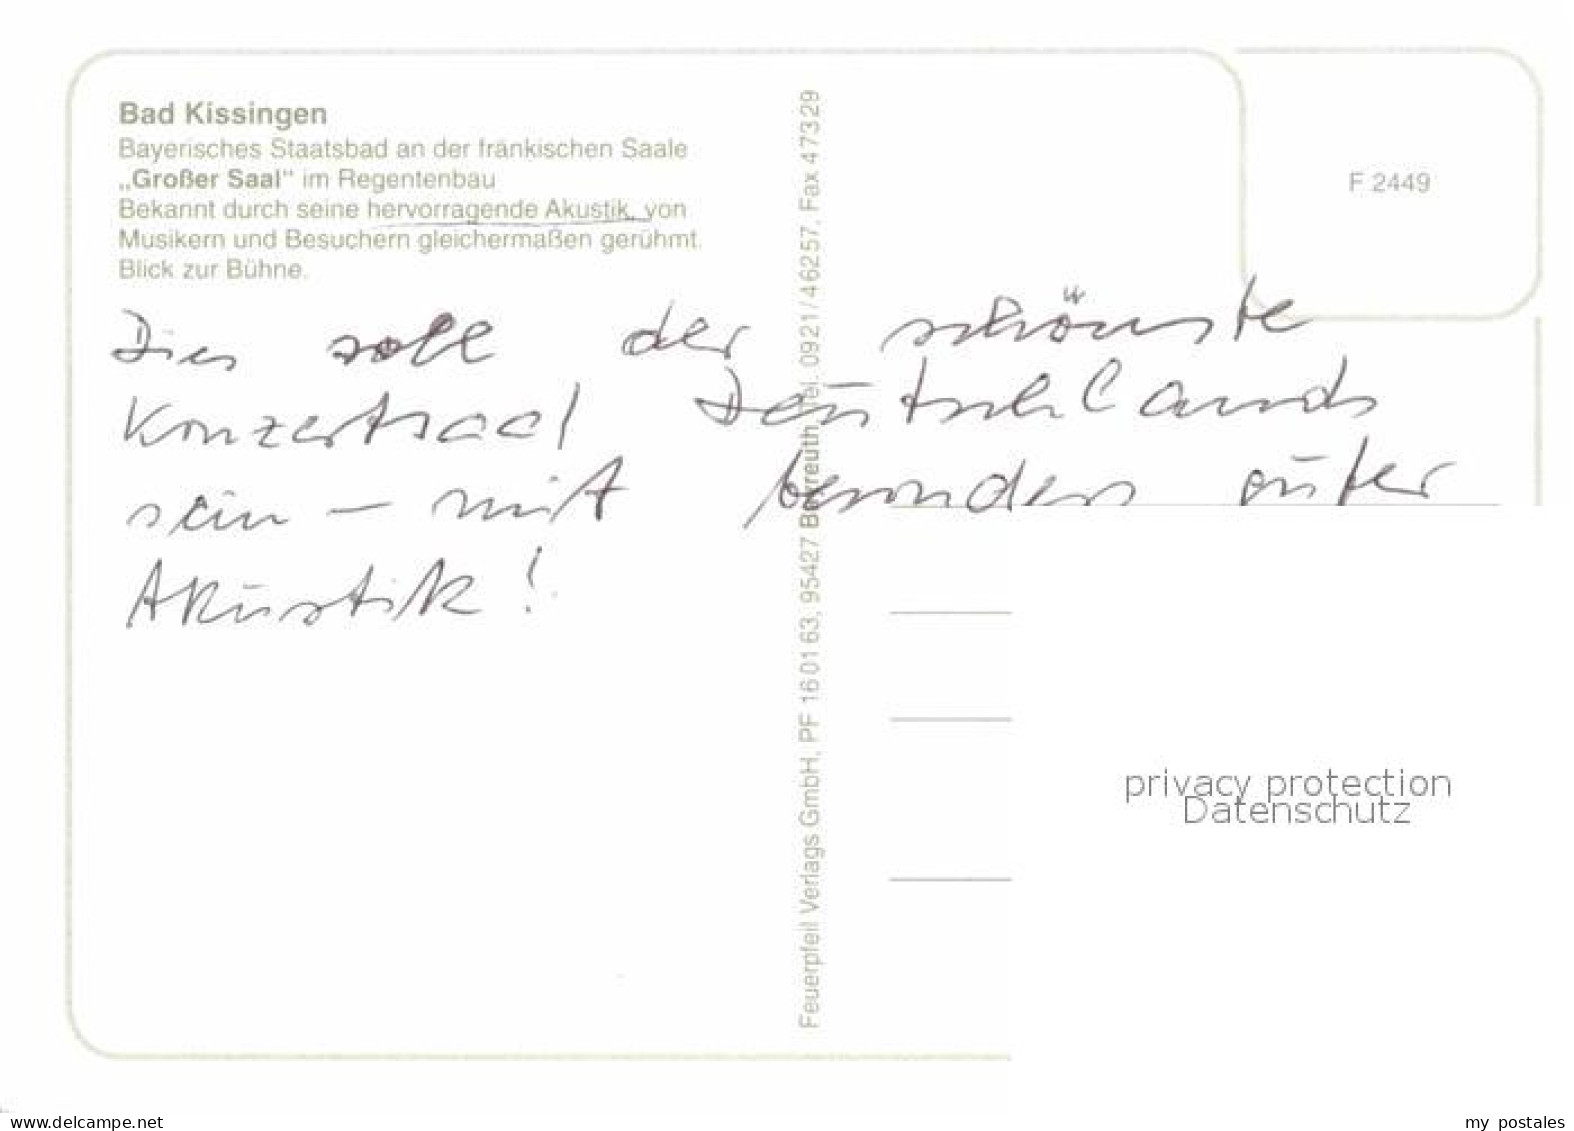 Bad Kissingen
Bayerisches Staatsbad an der fränkischen Saale
„Großer Saal" im Regentenbau
Bekannt durch seine hervorragende Akustik, von
Musikern und Besuchern gleichermaßen gerühmt.
Blick zur Bühne.
F 2449
Dies soll der schönste
Konzertsaal Deutschlands
sein – mit besonders guter
Akustik!
Feuerpfeil Verlags GmbH, PF 16 01 63, 95427 Bayreuth, Tel. 0921/46257, Fax 47329
privacy protection
Datenschutz
www.delcampe.net
my_postales